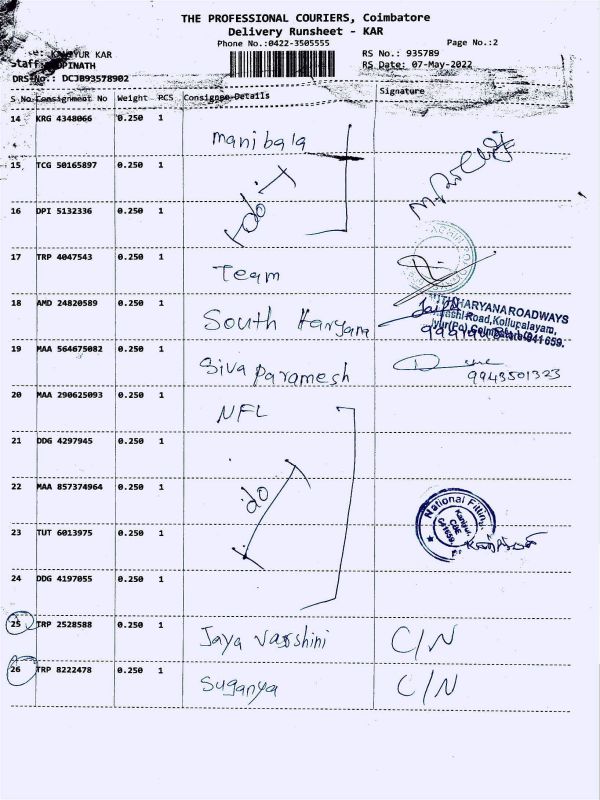 THE PROFESSIONAL COURIERS, Coimbatore
Delivery Runsheet - KAR
Phone No.:0422-3505555
Page No.:2
RS No.: 935789
RS Date: 07-May-2022
KANIYUR KAR
Staff
DRS No.: DCJB93578902
S No Consignment No Weight PCS Consignee Details Signature
14 KRG 4348066 0.250 1 manibala
15 TCG 50165897 0.250 1 do
16 DPI 5132336 0.250 1
17 TRP 4047543 0.250 1 Team
18 AMD 24820589 0.250 1 South Haryana
HARYANA ROADWAYS
Road, Kollupalayam,
19 MAA 564675082 0.250 1 Siva paramesh 9943501323
20 MAA 290625093 0.250 1 NFL
21 DDG 4297945 0.250 1
22 MAA 857374964 0.250 1 do
National Fitting
23 TUT 6013975 0.250 1
24 DDG 4197055 0.250 1
25 TRP 2528588 0.250 1 Jaya Varshini C/N
26 TRP 8222478 0.250 1 Suganya C/N